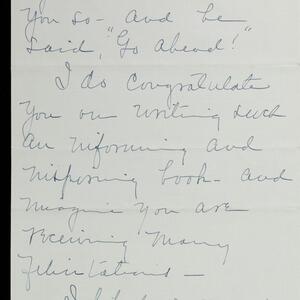 You so - And he
said, "Go Ahead!"
I do Congratulate
You on writing such
An informing And
Inspiring book - And
Imagine You are
receiving Many
Felicitations -